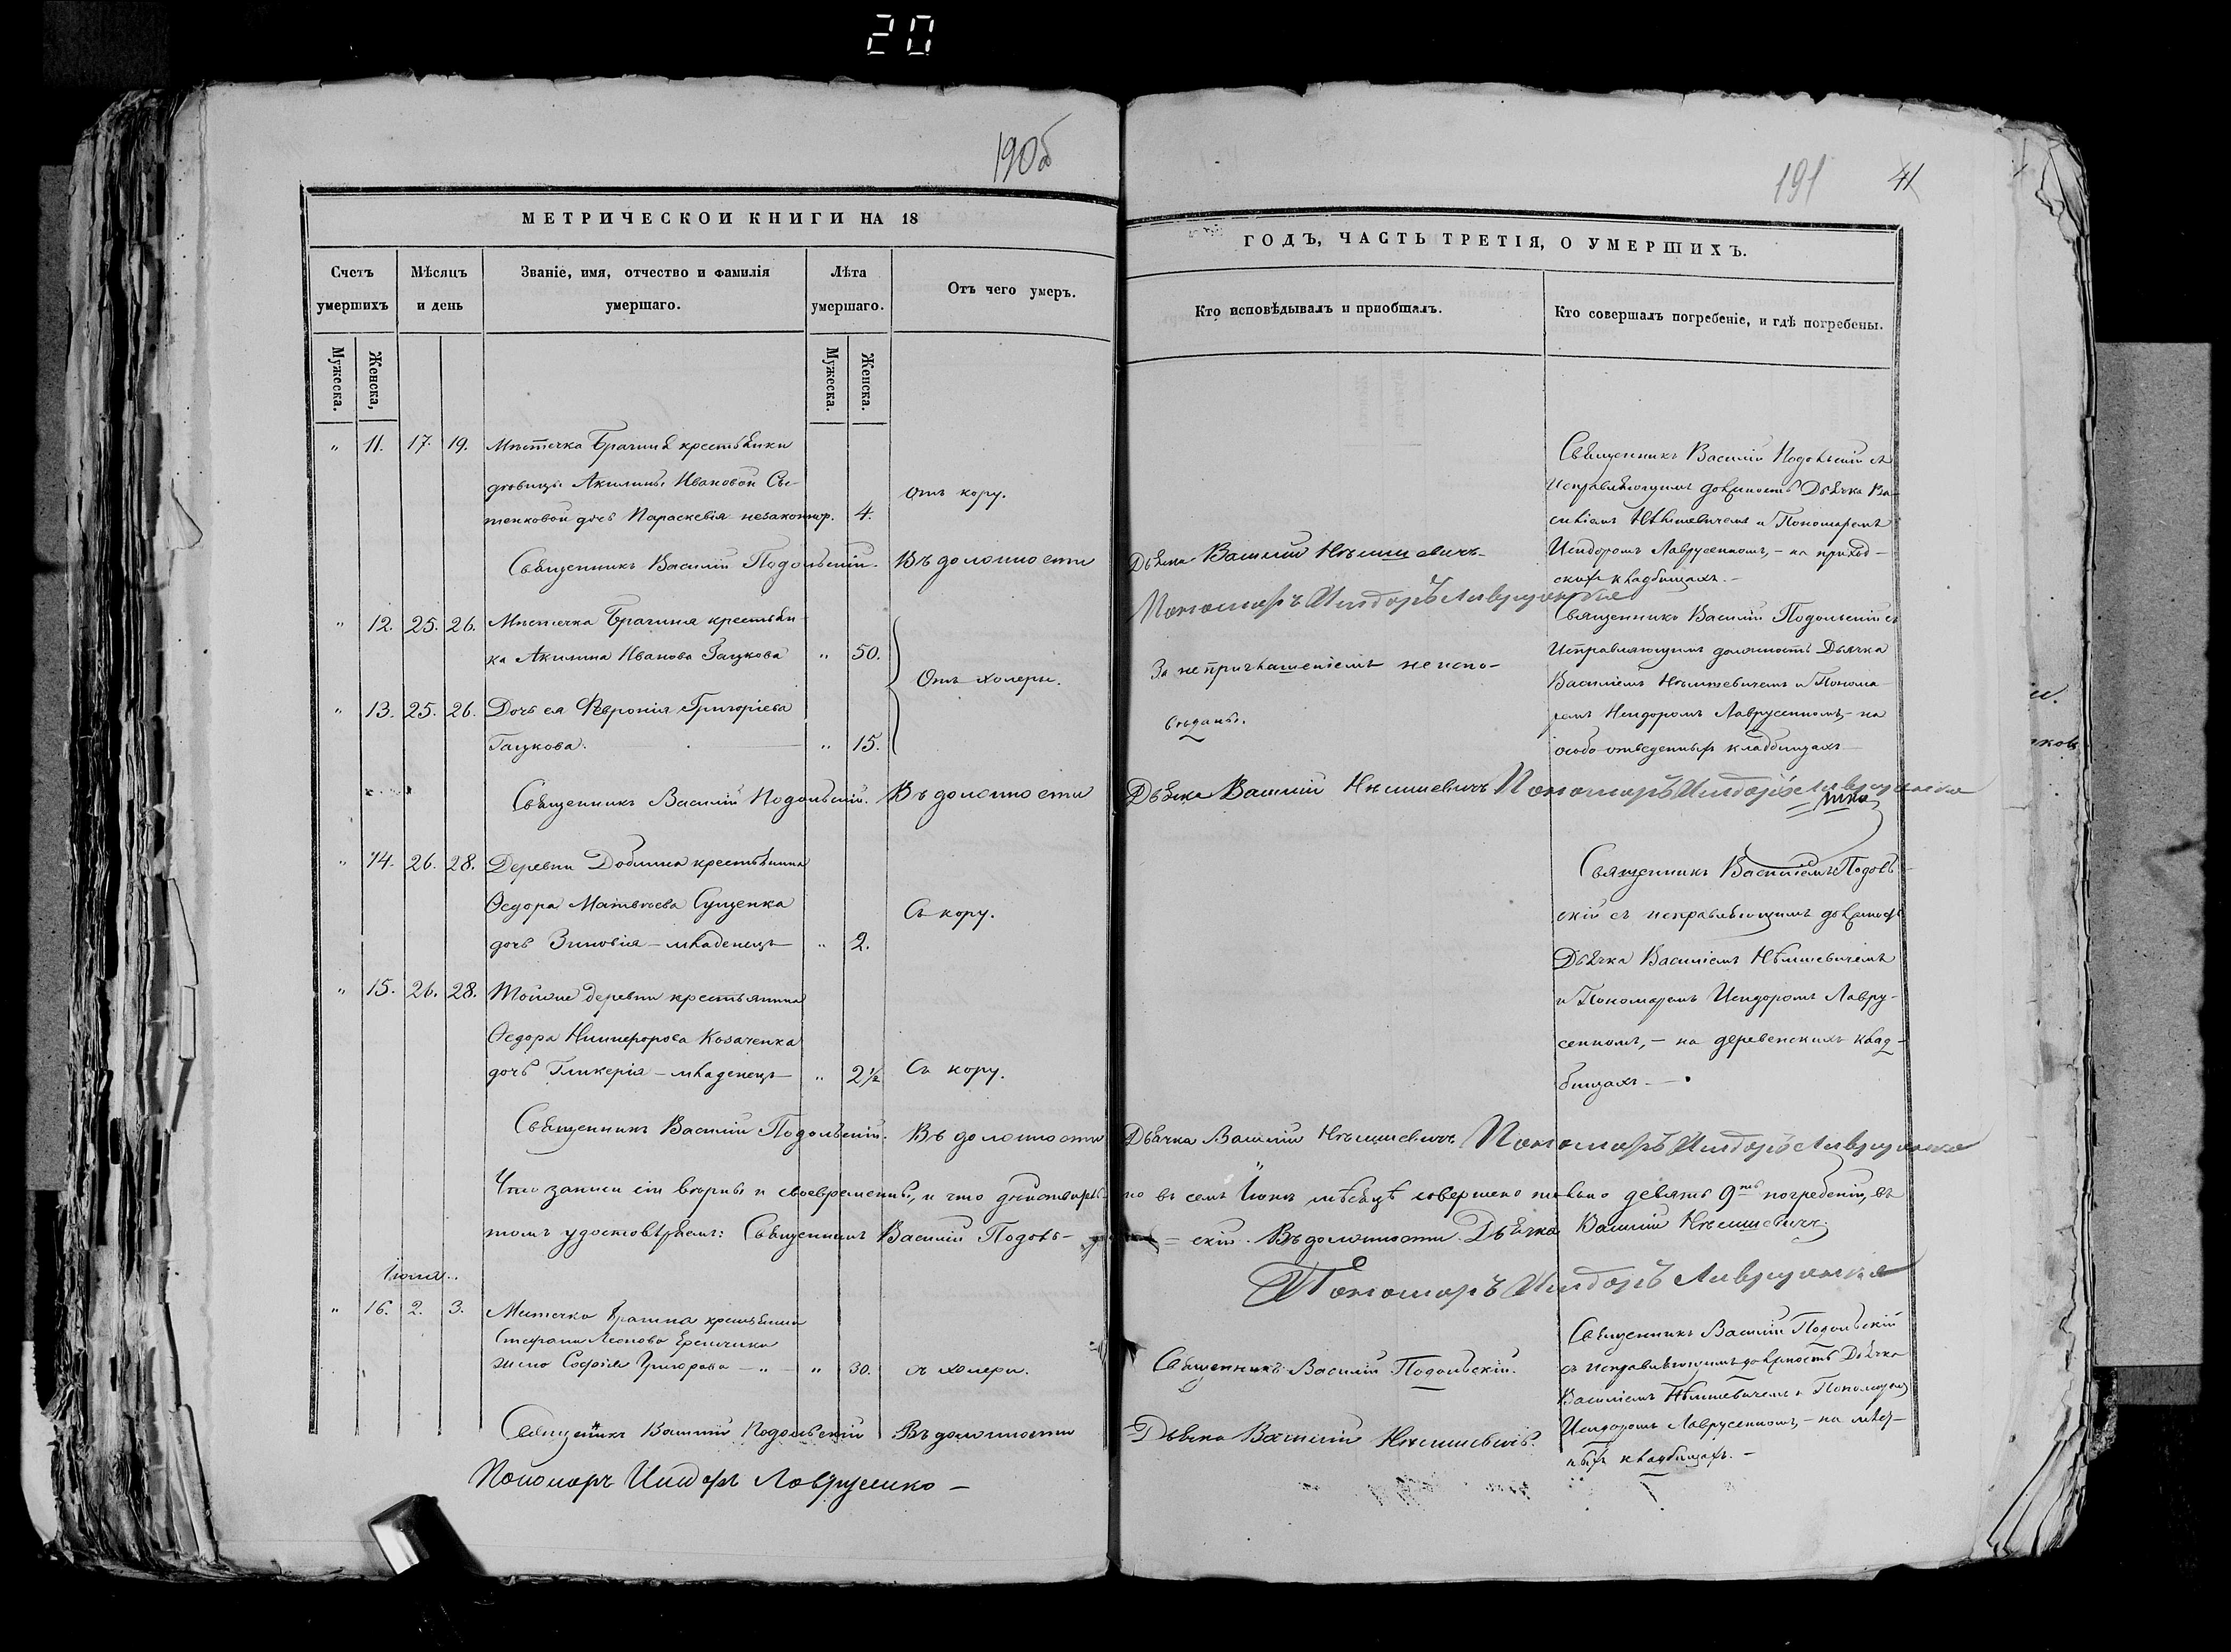 20
190об
191 41
МЕТРИЧЕСКОЙ КНИГИ НА 18
ГОДЪ, ЧАСТЬ ТРЕТІЯ, О УМЕРШИХЪ.
Счетъ умершихъ
Мѣсяцъ и день
Званіе, имя, отчество и фамилія умершаго.
Лѣта умершаго.
Отъ чего умеръ.
Кто исповѣдывалъ и пріобщалъ.
Кто совершалъ погребеніе, и гдѣ погребены.
Мужеска.
Женска,
Мужеска.
Женска.
" 11. 17. 19. Мѣстечка Брагиня крестьянки
дѣвицы Акилины Ивановой
дочь Параскевія незаконнор. 4.
Отъ кору.
Священникъ Василій Подольскій съ
исправляющимъ должность Дьячка Ва-
силіемъ Нѣмшевичемъ и Пономаремъ
Исидоромъ Лаврусенкомъ, - на приход-
скихъ кладбищахъ. -
Священникъ Василій Подольскій. Въ должности Дьячка Василій Нѣмшевичъ
Пономаръ Исидоръ Лаврусенко
" 12. 25. 26. Мѣстечка Брагиня крестьян-
ка Акилина Иванова Гацкова " 50.
" 13. 25. 26. Дочь ея Февронія Григоріева
Гацкова. " 15.
Отъ холеры.
За непричашеніемъ не испо-
вѣданы.
Священникъ Василій Подольскій съ
исправляющимъ должность Дьячка
Василіемъ Нѣмшевичемъ и Понома-
ремъ Исидоромъ Лаврусенкомъ, - на
особо отведенныхъ кладбищахъ
Священникъ Василій Подольскій. Въ должности Дьячка Василій Нѣмшевичъ Пономаръ Исидоръ Лаврусенко
" 14. 26. 28. Деревни крестьянина
Ѳедора Матвѣева Сущенка
дочь Зиновія - младенецъ " 2.
Съ кору.
Священникъ Василіемъ Подоль-
скій съ исправляющимъ должность
Дьячка Василіемъ Нѣмшевичемъ
и Пономаремъ Исидоромъ Лавру-
сенкомъ, - на деревенскихъ клад-
бищахъ. -
" 15. 26. 28. Тойже деревни крестьянина
Ѳедора Никифорова Козаченка
дочь Гликерія - младенецъ " 2½
Съ кору.
Священникъ Василій Подольскій. Въ должности Дьячка Василій Нѣмшевичъ Пономаръ Исидоръ Лаврусенко
Что записи сіи вѣрны и своевременны, и что дѣйствительно въ семъ Іюнѣ мѣсяцѣ совершено только девять 9ть погребеній, въ
томъ удостовѣряемъ: Священникъ Василій Подоль- = скій. Въ должности Дьячка Василій Нѣмшевичъ
Пономаръ Исидоръ Лаврусенко
Іюля.
" 16. 2. 3. Мѣстечка Брагина крестьянина
жена Софія Григорьева " 30.
съ холеры.
Священникъ Василій Подольскій.
Священникъ Василій Подольскій
съ исправляющимъ должность Дьячка
Василіемъ Нѣмшевичемъ и Пономаремъ
Исидоромъ Лаврусенкомъ, - на
кладбищахъ. -
Священникъ Василій Подольскій Въ должности Дьячка Василій Нѣмшевичъ.
Пономаръ Исидоръ Лаврусенко -